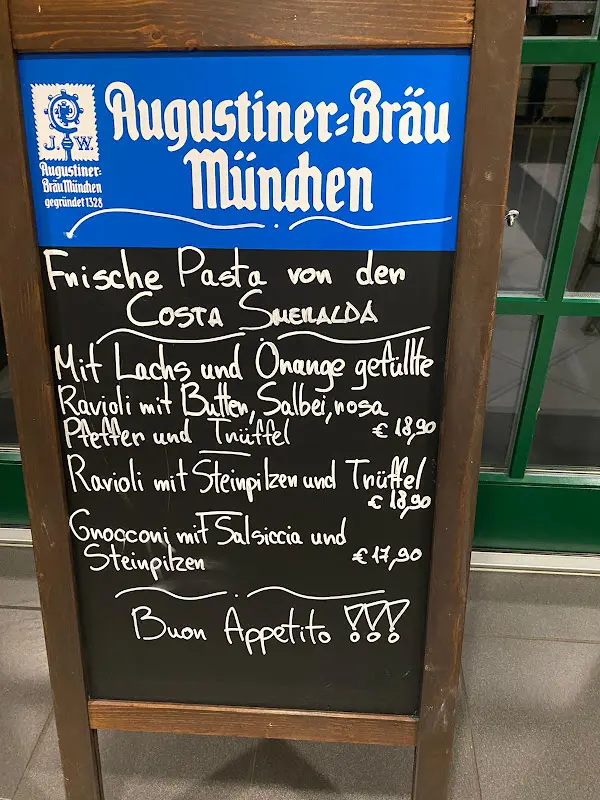 Augustiner=Bräu
München
J. W.
Augustiner=
Bräu München
gegründet 1328
Frische Pasta von der
COSTA SMERALDA
Mit Lachs und Orange gefüllte
Ravioli mit Butter, Salbei, rosa
Pfeffer und Trüffel € 18,90
Ravioli mit Steinpilzen und Trüffel
€ 18,90
Gnocconi mit Salsiccia und
Steinpilzen € 17,90
Buon Appetito !!!